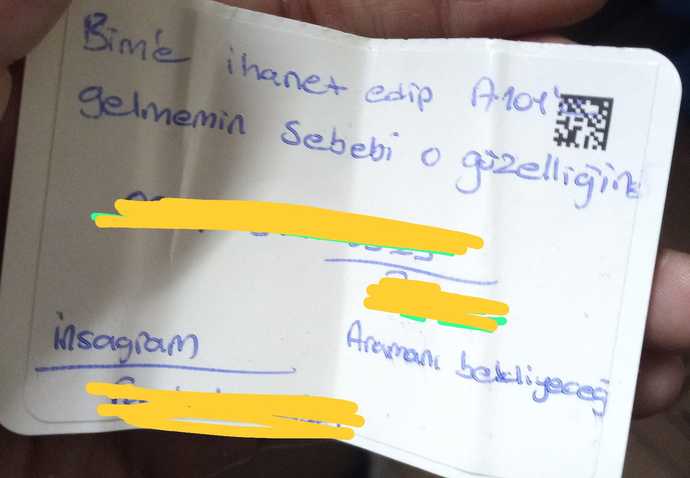 Bim'e ihanet edip A101'e
gelmemin sebebi o güzelliğin
insagram
Aramanı bekliyeceğ